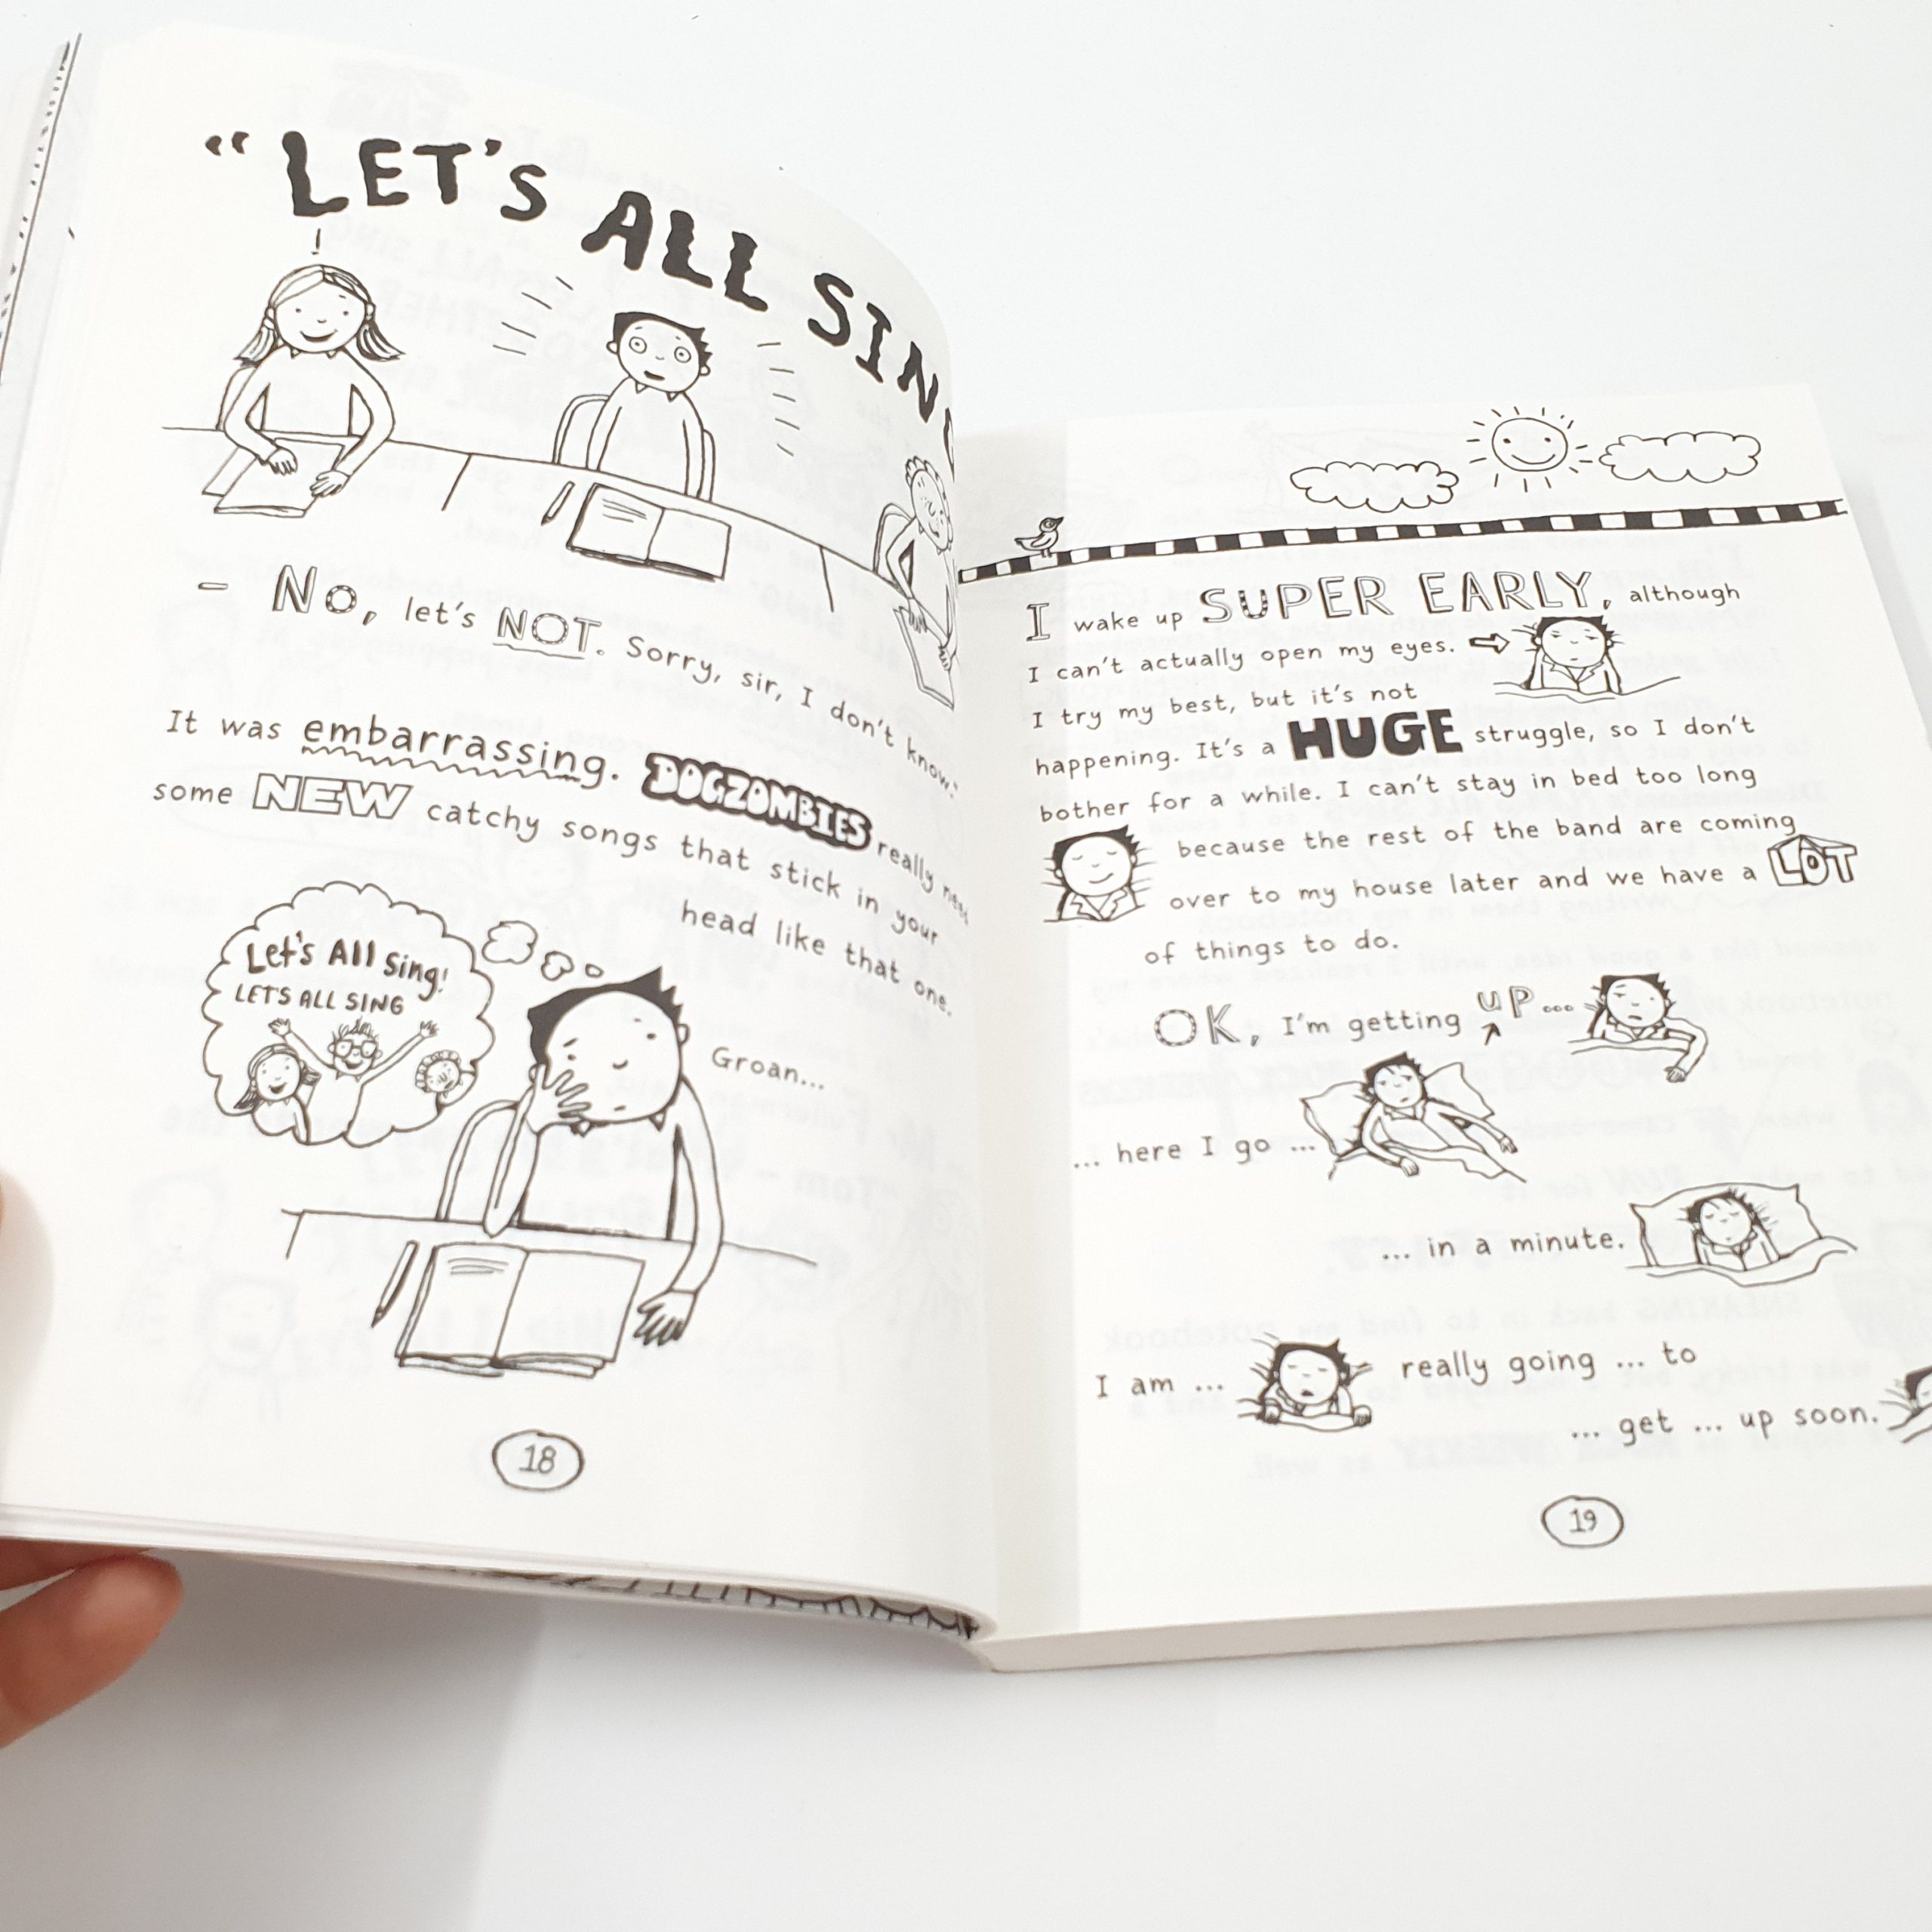 “LET'S ALL SIN
- No, let's NOT. Sorry, sir, I don't know."
It was embarrassing. DOGZOMBIES really need
some NEW catchy songs that stick in your
head like that one.
Let's All Sing!
LET'S ALL SING
Groan...
18
I wake up SUPER EARLY, although
I can't actually open my eyes.
I try my best, but it's not
happening. It's a HUGE struggle, so I don't
bother for a while. I can't stay in bed too long
because the rest of the band are coming
over to my house later and we have a LOT
of things to do.
OK, I'm getting up...
... here I go ...
... in a minute.
I am ... really going ... to
... get ... up soon.
19